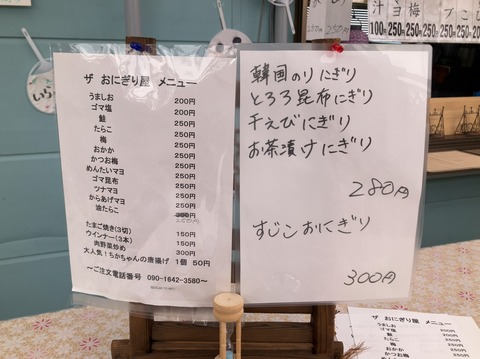 ザ おにぎり屋 メニュー
うましお 200円
ゴマ塩 200円
鮭 250円
たらこ 250円
梅 250円
おかか 250円
かつお梅 250円
めんたいマヨ 250円
ゴマ昆布 250円
ツナマヨ 250円
からあげマヨ 250円
油たらこ 300円
たまご焼き(3切) 150円
ウインナー(3本) 150円
肉野菜炒め 300円
大人気!ちかちゃんの唐揚げ 1個 50円
~ご注文電話番号 090-1642-3580~
韓国のりにぎり
とろろ昆布にぎり
干えびにぎり
お茶漬けにぎり
280円
すじこおにぎり
300円
250円
汁 ヨ 梅 プ こ
100 250 250 250 250
ザ おにぎり屋 メニュー
うましお 200円
ゴマ塩 200円
鮭 250円
たらこ 250円
梅
おかか
かつお梅